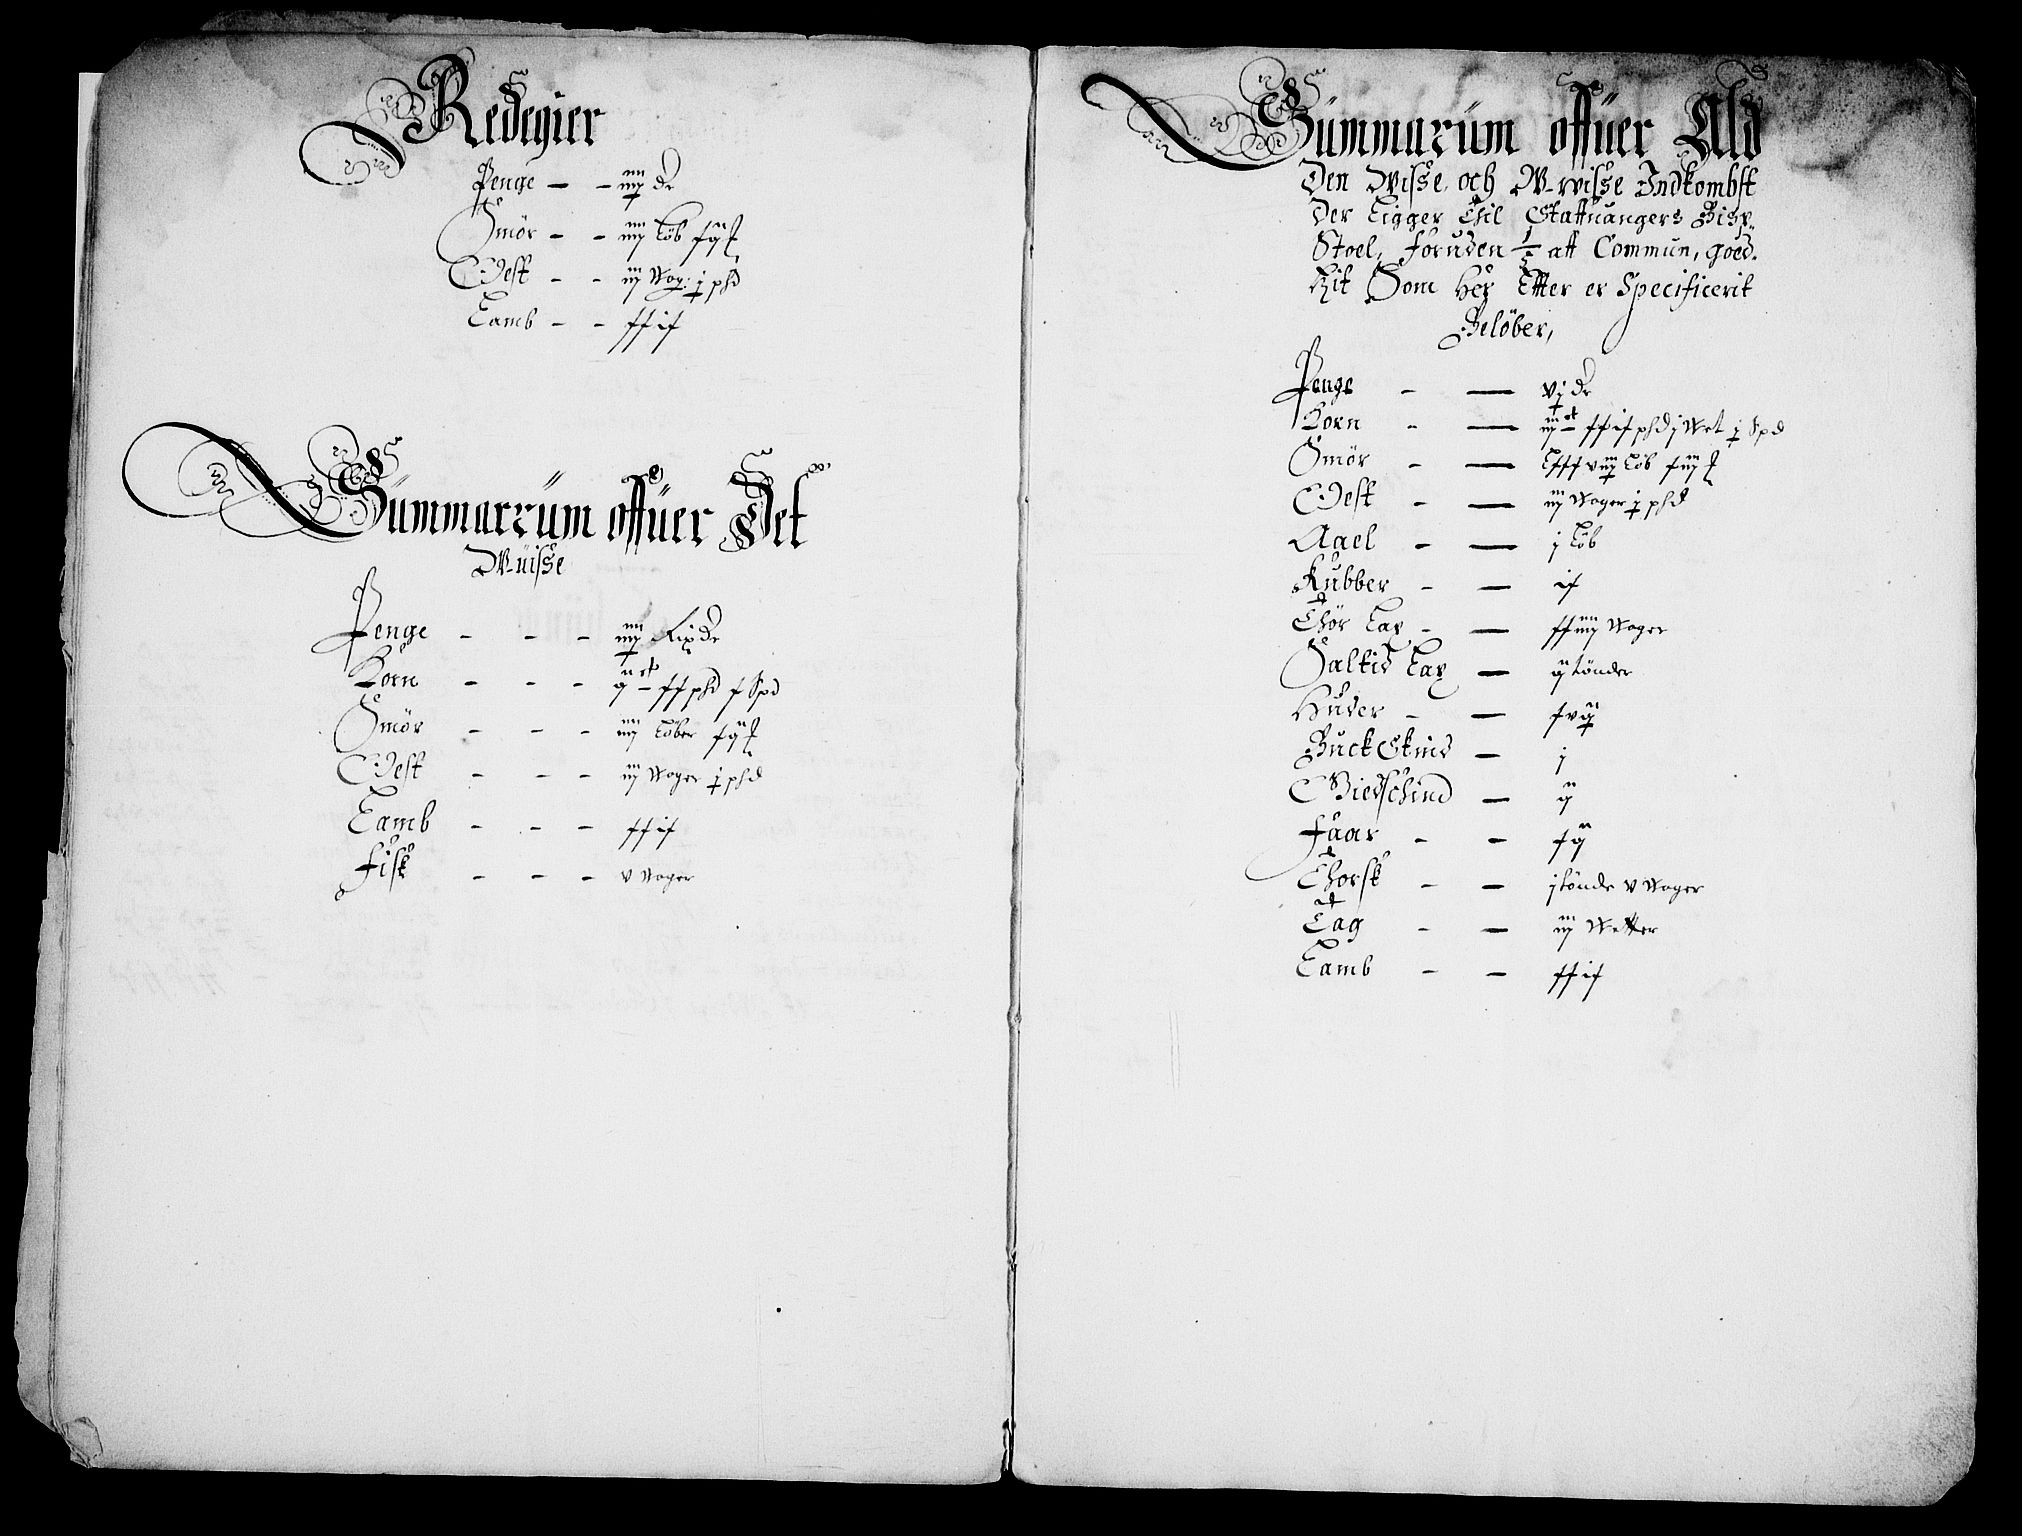 Redegier
Penge - - iiij dr
Smör - - iiij Löb
Oest - - iij Wog: j phd
Lamb - - xxix
Summarrüm offuer Det
W-uisse
Penge - - - iiij Rixdr
Korn - - - xx phd x Spd
Smör - - - iiij Löber
Oest - - - iij Woger j phd
Lamb - - - xxix
Fisk - - - v Woger
Summarüm offuer Ald
Den Wisse, och W-wisse Indkombst
Der Ligger Thil Staffuangers Bisp-
Stoel, foruden aff Commun, goed.
Hit Som Her Efter er Specificerit
Belöber,
Penge - — vj dr
Korn - — xxix phd j Wet j Spd
Smör - — Löb
Oest - — iij Woger j phd
Aael - — j Löb
Kubber - — ix
Thör Lax - — Woger
Saltid Lax — ij tönder
Huder - — xvij
Buck Skind — j
Giedschind — ij
Faar - — xij
Thorsk - — j tönde v Woger
Tag - — iij Wetter
Lamb - — xxix